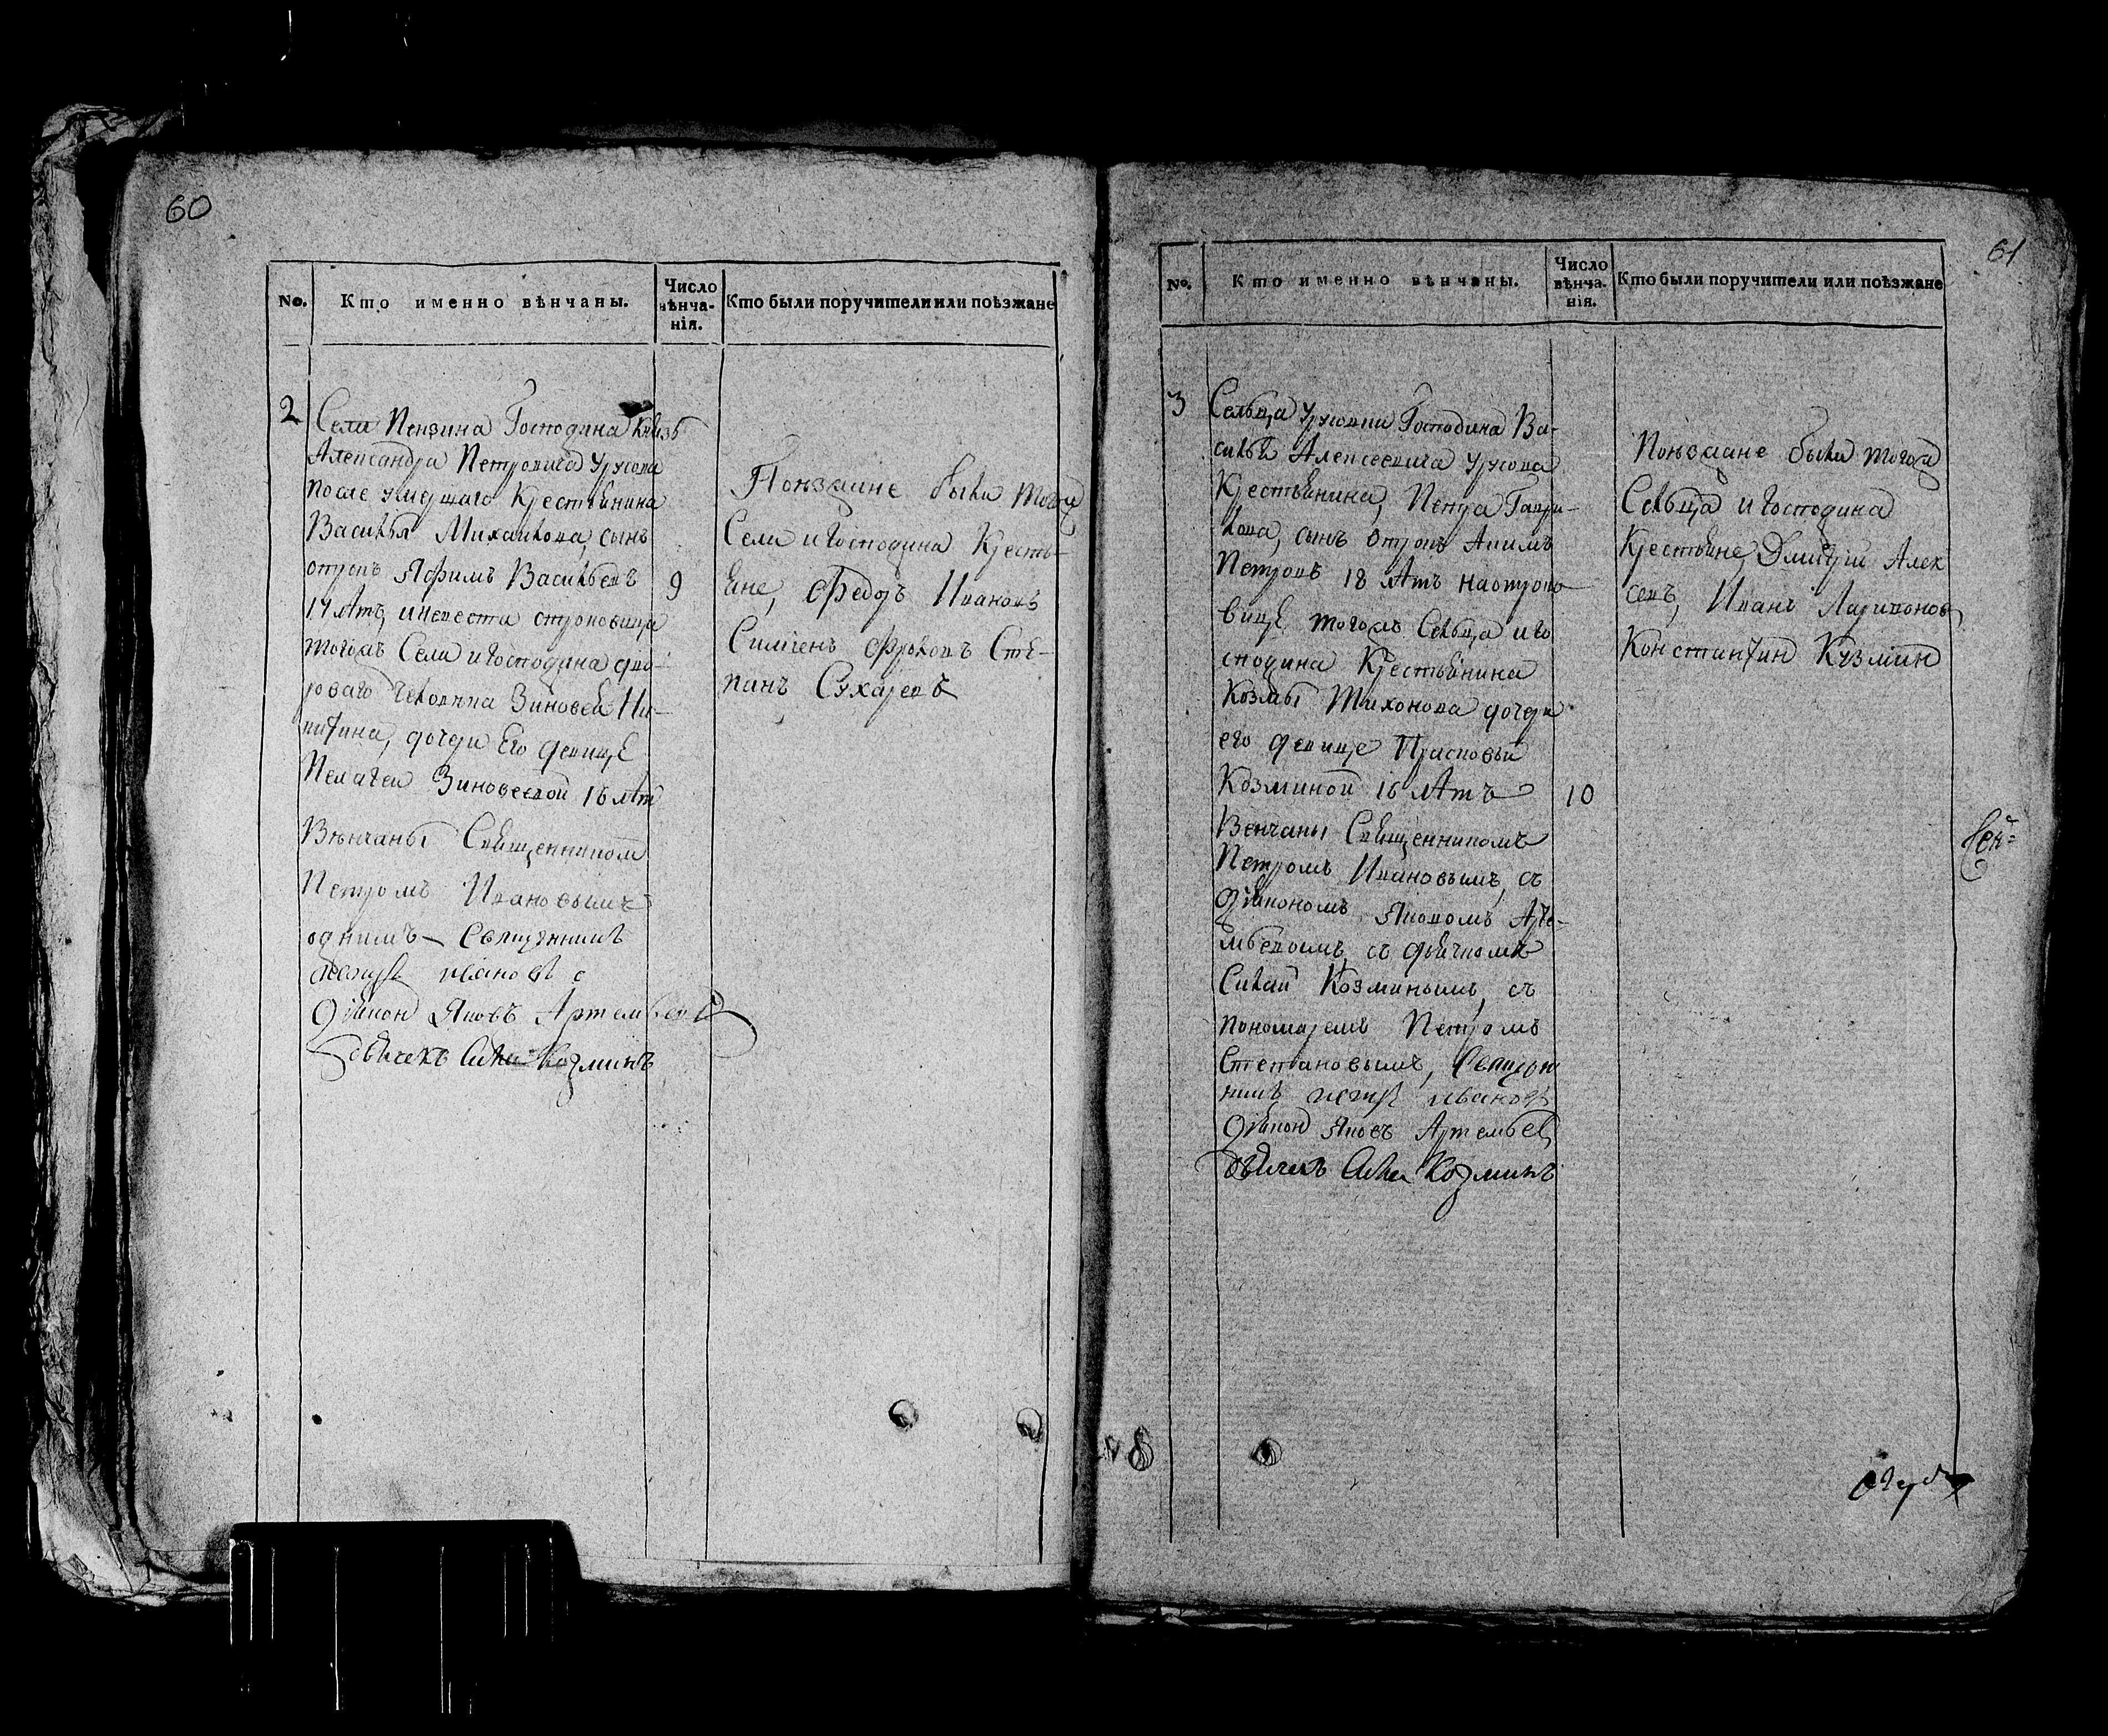 60
No.
Кто именно вѣнчаны.
Число
вѣнча-
нія.
Кто были поручители или поѣзжане
2
Села Пензина Господина Князь
Александра Петровича Урусова
после умершаго Крестьянина
Василья Михаилова, сынъ
отрокъ Яфимъ Васильевъ
17 лѣтъ, и невеста отроковица
тогожъ Села и Господина дво-
роваго человѣка Зиновея Ни-
китина, дочери Его девице
Пелагеи Зиновеевой 16 лѣт
Вѣнчаны Священником
Петромъ Ивановымъ
однимъ — Священникъ
петръ иванов
дiякон Яковъ Артемьевъ
дьячекъ Сила Козминъ
9
Поѣзжане были тогож
Села и Господина Кресть-
яне, Федоръ Ивановъ
Симиенъ Фроловъ Сте-
панъ Сухаревъ
61
No.
Кто именно вѣнчаны.
Число
вѣнча-
нія.
Кто были поручители или поѣзжане
3
Сельца Урусовки Господина Ва-
силья Алексеевича Урусова
Крестьянина, Петра Гаври-
лова, сынъ отрокъ Акимъ
Петровъ 18 лѣтъ на отроко-
вице тогожъ Сельца и го
сподина Крестьянина
Козмы Тихонова дочери
его девице Прасковьи
Козминой 16 лѣтъ
Венчаны Священникомъ
Петромъ Ивановымъ, съ
дiякономъ Яковомъ Арте-
мьевымъ, съ дьячкомъ
Силай Козминымъ, съ
пономаремъ Петромъ
Степановымъ, Священ
никъ петръ иванов
дiякон Яковъ Артемьев
дьячекъ Сила Козминъ
10
Поѣзжане были тогож
Сельца и Господина
Крестьяне, Дмитрий Алек
сеевъ, Иванъ Ларионов,
Константин Кузмин